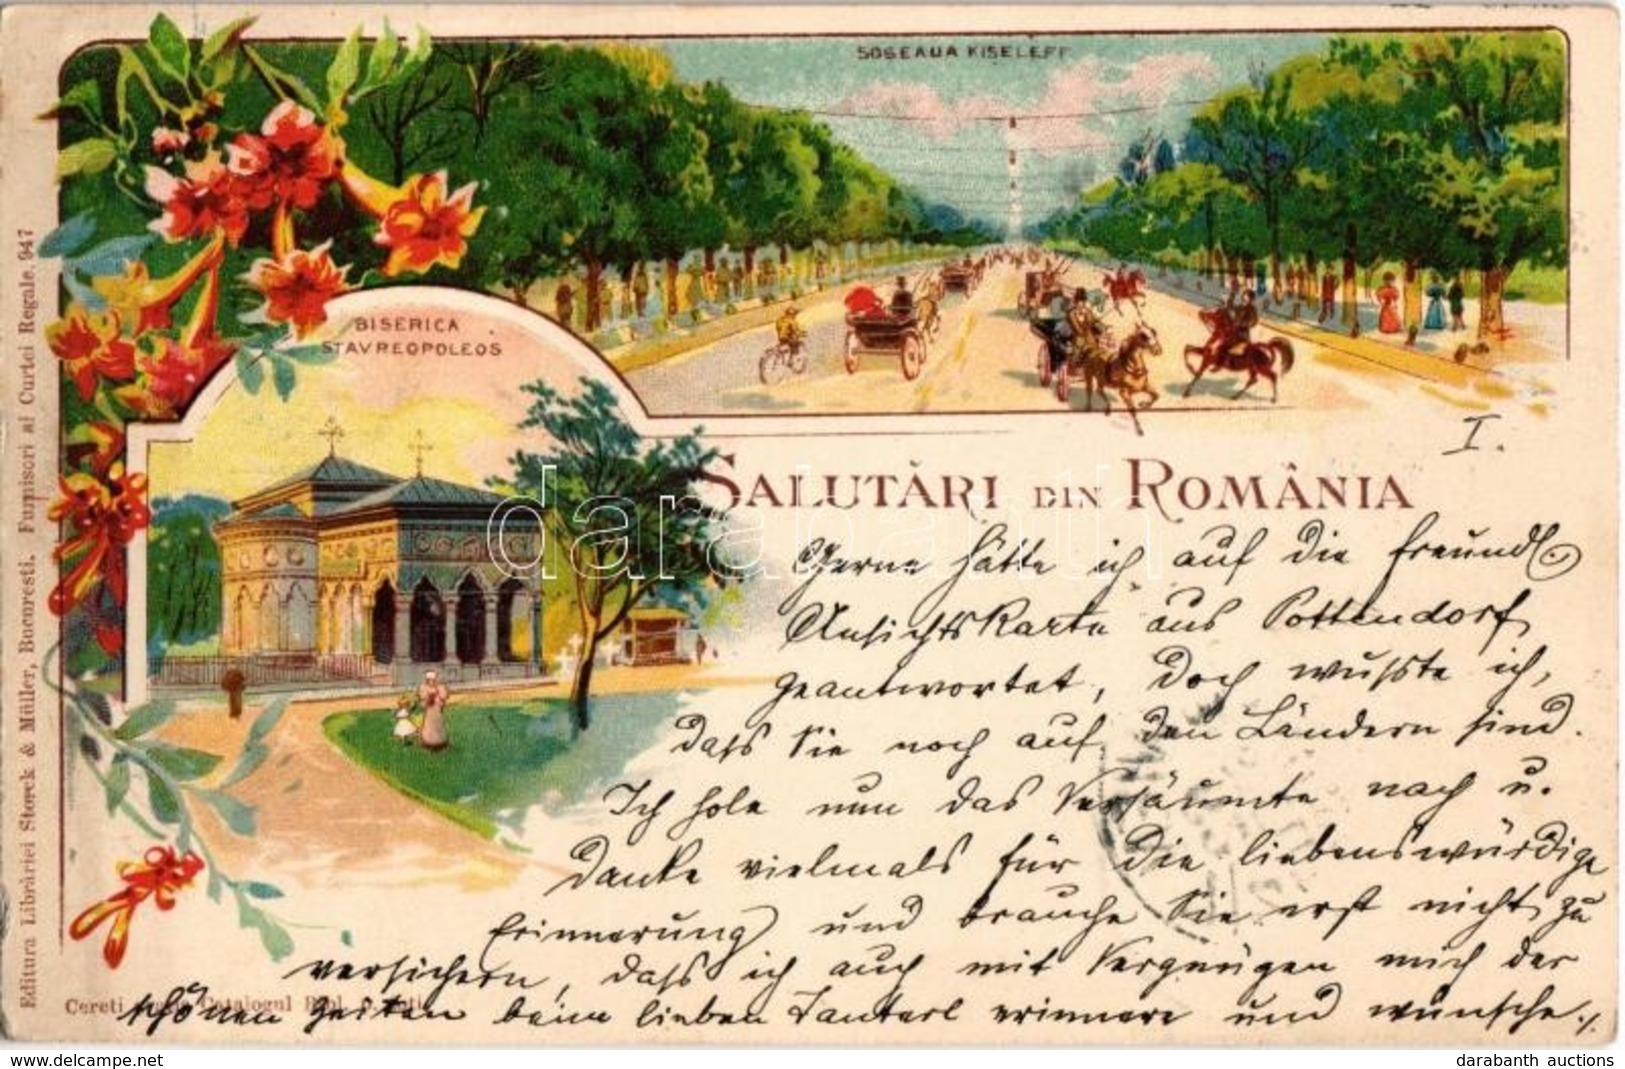 SOSEAUA KISELEFF
BISERICA
STAVREOPOLEOS
SALUTĂRI DIN ROMÂNIA
I.
Gerne hätte ich auf die freundl.
Ansichtskarte aus Pottendorf
geantwortet, doch wußte ich,
daß Sie noch auf den Ländern sind.
Ich hole nun das Versäumte nach u.
danke vielmals für die liebenswürdige
Erinnerung und brauche Sie erst nicht zu
versichern, daß ich auch mit Vergnügen mich der
schönen Zeiten beim lieben Tanterl erinnere und wünsche ./.
Editura Librăriei Storck & Müller, Bucuresti. Furnisori ai Curtei Regale. 947
Cereti Catalogul
darabanth
darabanth auctions